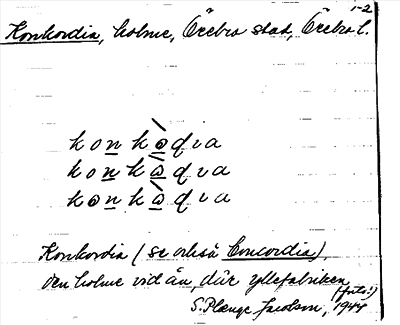 1-2
Konkordia, holme, Örebro stad, Örebro l.
konkòdva
konkàdva
konkàdva
Konkordia (se också Concordia),
den holme vid ån, där yllefabriken
(fints!)
S. Plænge Jacobson, 1944